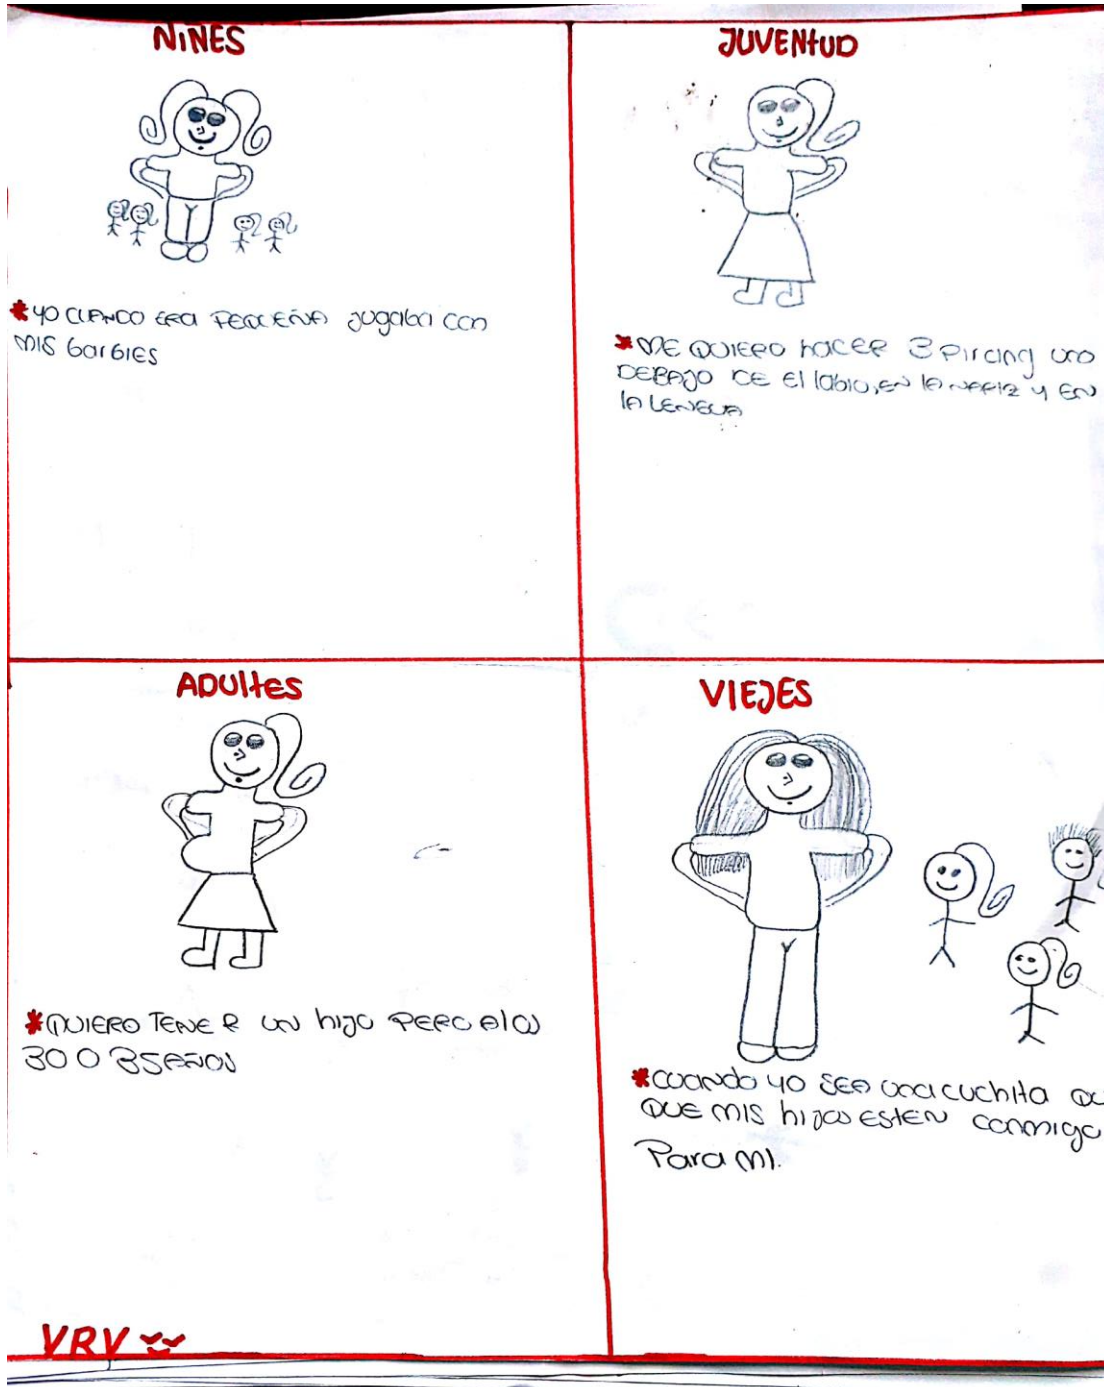 NIÑES
*YO CUANDO ERA PEQUEÑA jugaba con
MIS barbies
JUVENtUD
*ME QUIERO hacer 3 Pircing uno
DEBAJO DE El labio, EN lA NARIZ y EN
lA LENGUA
ADUltES
*QUIERO TENER UN hijo PERO A los
30 O 35 AÑOS
VIEJES
*CUANDO YO SEA una cuchita
QUE MIS hijos ESTEN conmigo
Para MI.
VRV